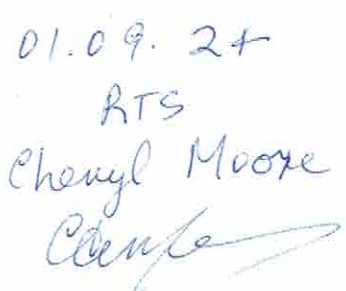 01.09.2+
RTS
Cheryl Moore